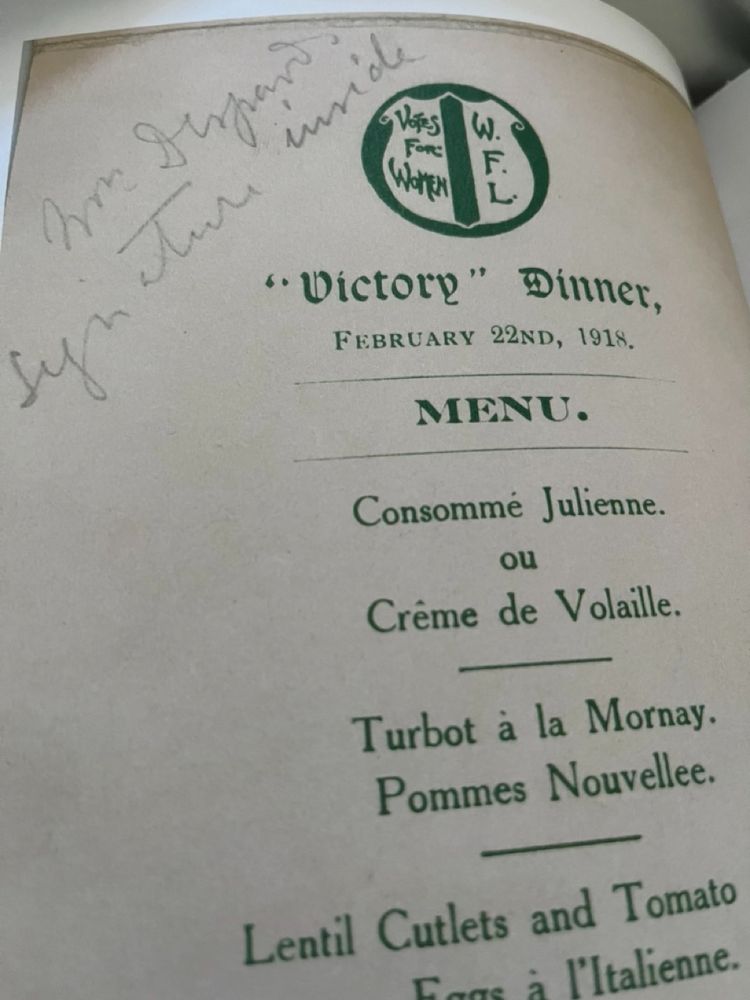 Mrs Despard
signature inside
Votes
For
Women
W.
F.
L.
“Victory” Dinner,
February 22nd, 1918.
MENU.
Consommé Julienne.
ou
Crême de Volaille.
Turbot à la Mornay.
Pommes Nouvellee.
Lentil Cutlets and Tomato
Eggs à l'Italienne.